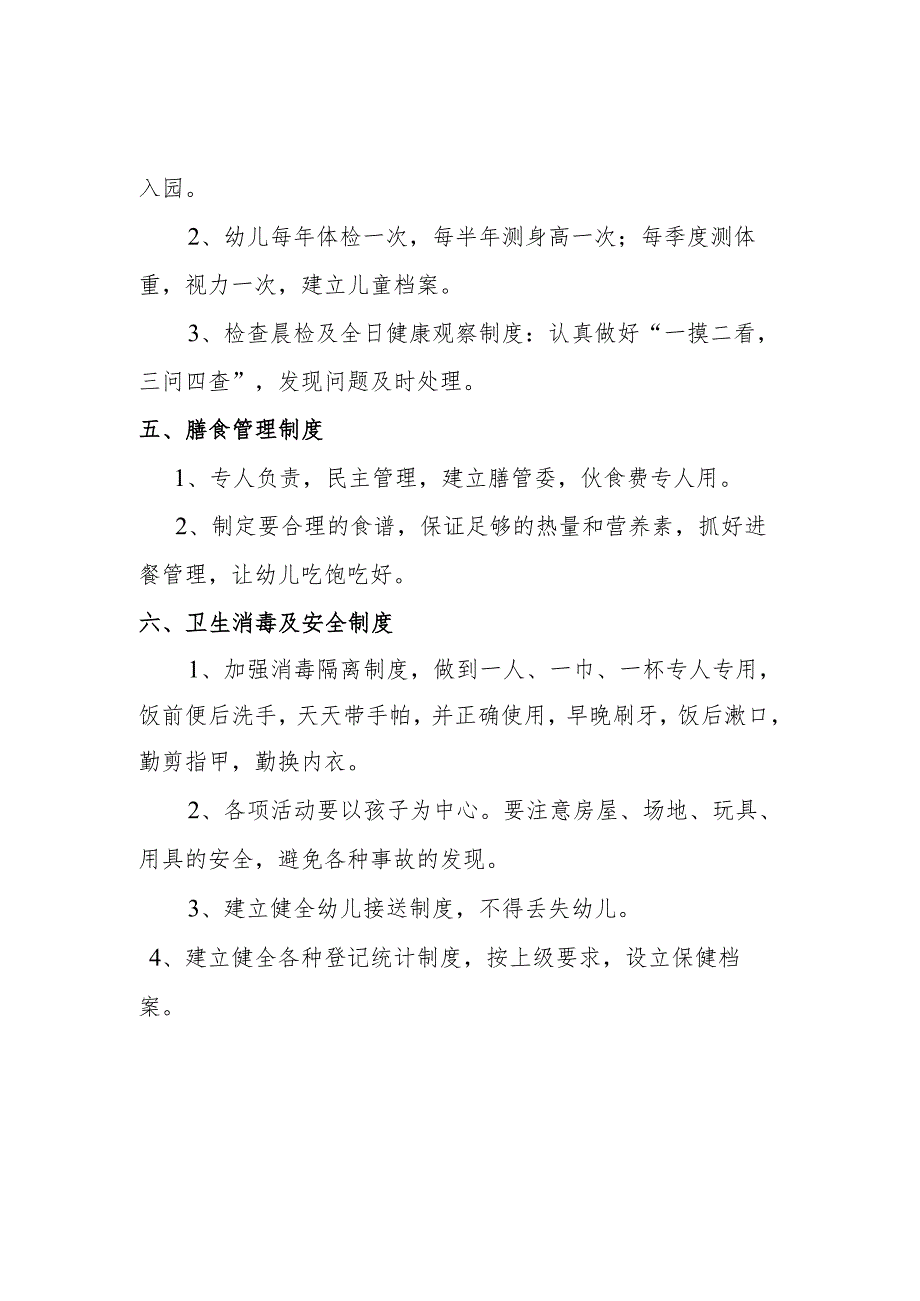 入园。
2、幼儿每年体检一次，每半年测身高一次；每季度测体
重，视力一次，建立儿童档案。
3、检查晨检及全日健康观察制度：认真做好“一摸二看，
三问四查”，发现问题及时处理。
五、膳食管理制度
1、专人负责，民主管理，建立膳管委，伙食费专人用。
2、制定要合理的食谱，保证足够的热量和营养素，抓好进
餐管理，让幼儿吃饱吃好。
六、卫生消毒及安全制度
1、加强消毒隔离制度，做到一人、一巾、一杯专人专用，
饭前便后洗手，天天带手帕，并正确使用，早晚刷牙，饭后漱口，
勤剪指甲，勤换内衣。
2、各项活动要以孩子为中心。要注意房屋、场地、玩具、
用具的安全，避免各种事故的发现。
3、建立健全幼儿接送制度，不得丢失幼儿。
4、建立健全各种登记统计制度，按上级要求，设立保健档
案。